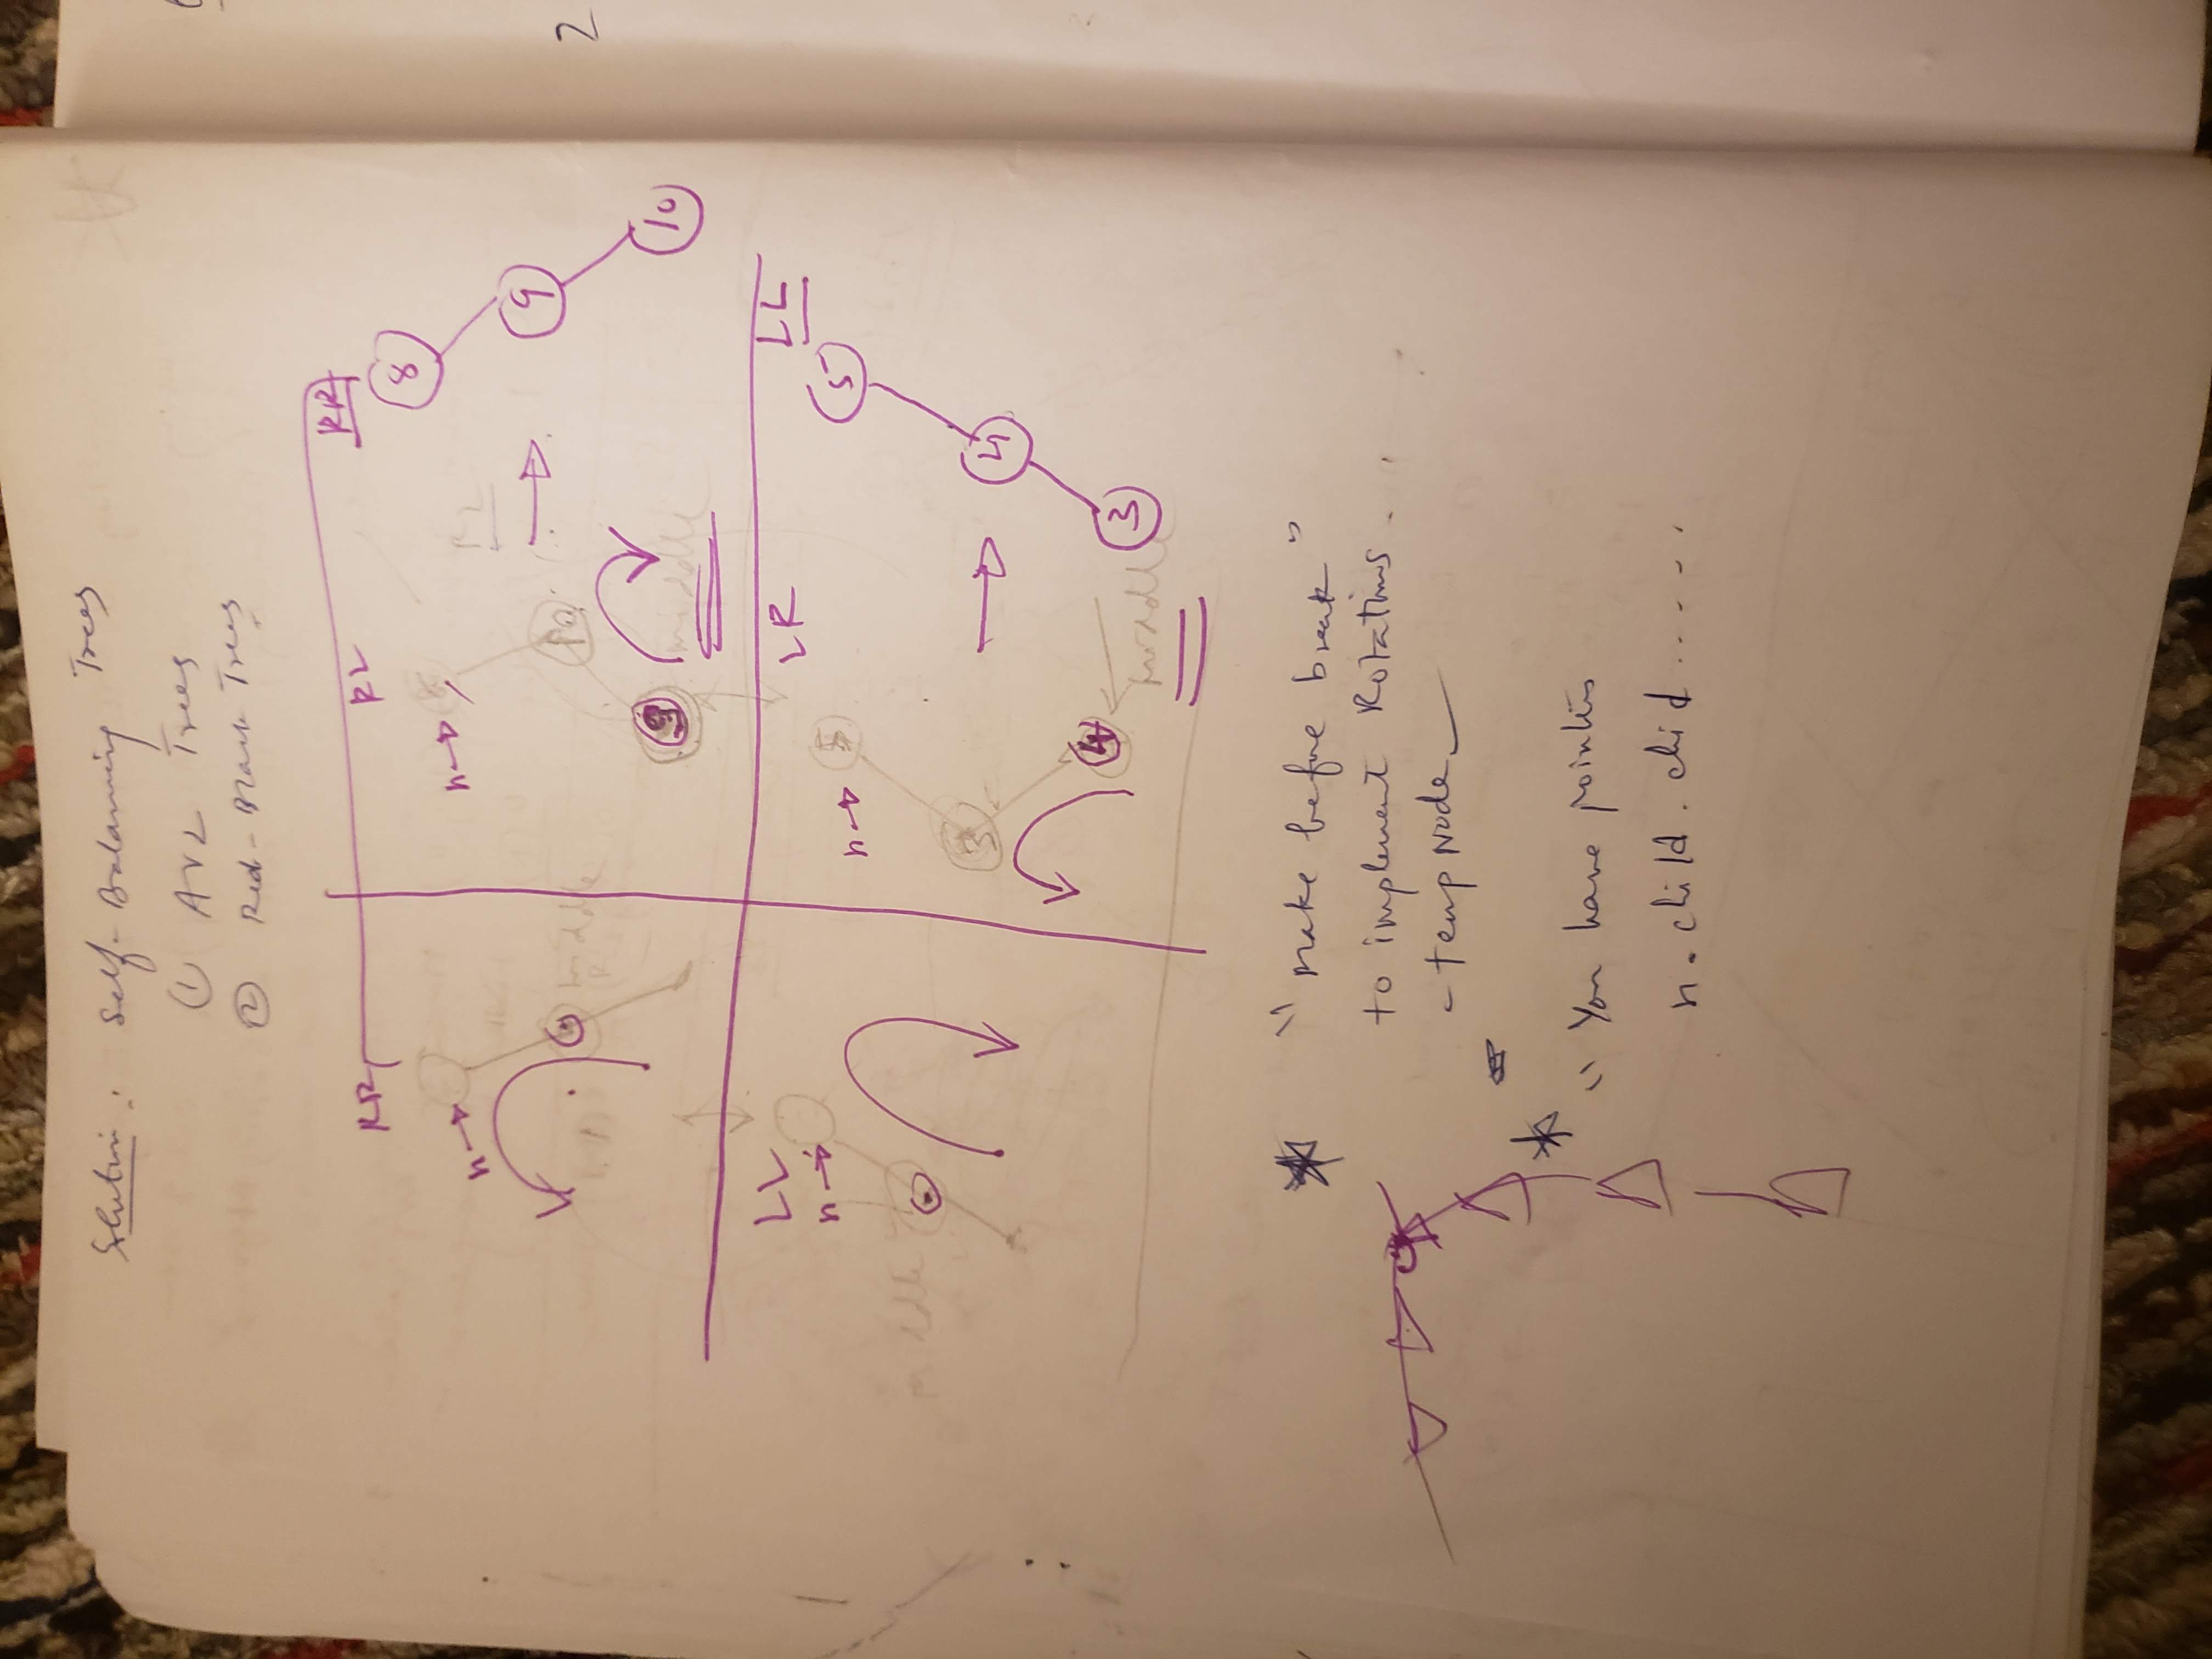 Solution: Self-Balancing Trees
① AVL Trees
② Red-Black Trees
RR
n→
middle
RL
n→
8
10
9
middle
RL
RR
8
9
10
LL
n→
middle
LR
n→
5
3
4
middle
LL
5
4
3
"Make before break"
to implement Rotations.
- temp Node
"You have pointers
n.child.chid.....
2